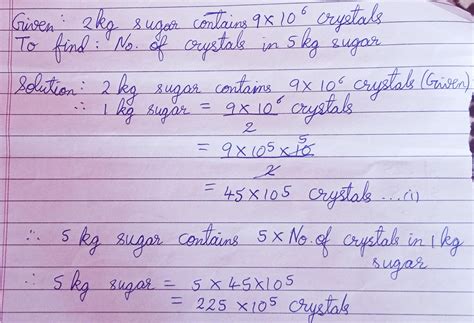 Given: 2kg sugar contains 9×10⁶ crystals
To find: No. of crystals in 5kg sugar
Solution: 2kg sugar contains 9×10⁶ crystals (Given)
∴ 1kg sugar = 9×10⁶ crystals
2
= 9×10⁵×10 5
2
= 45×10⁵ crystals ...(i)
∴ 5kg sugar contains 5×No. of crystals in 1kg
sugar
∴ 5kg sugar = 5×45×10⁵
= 225×10⁵ crystals